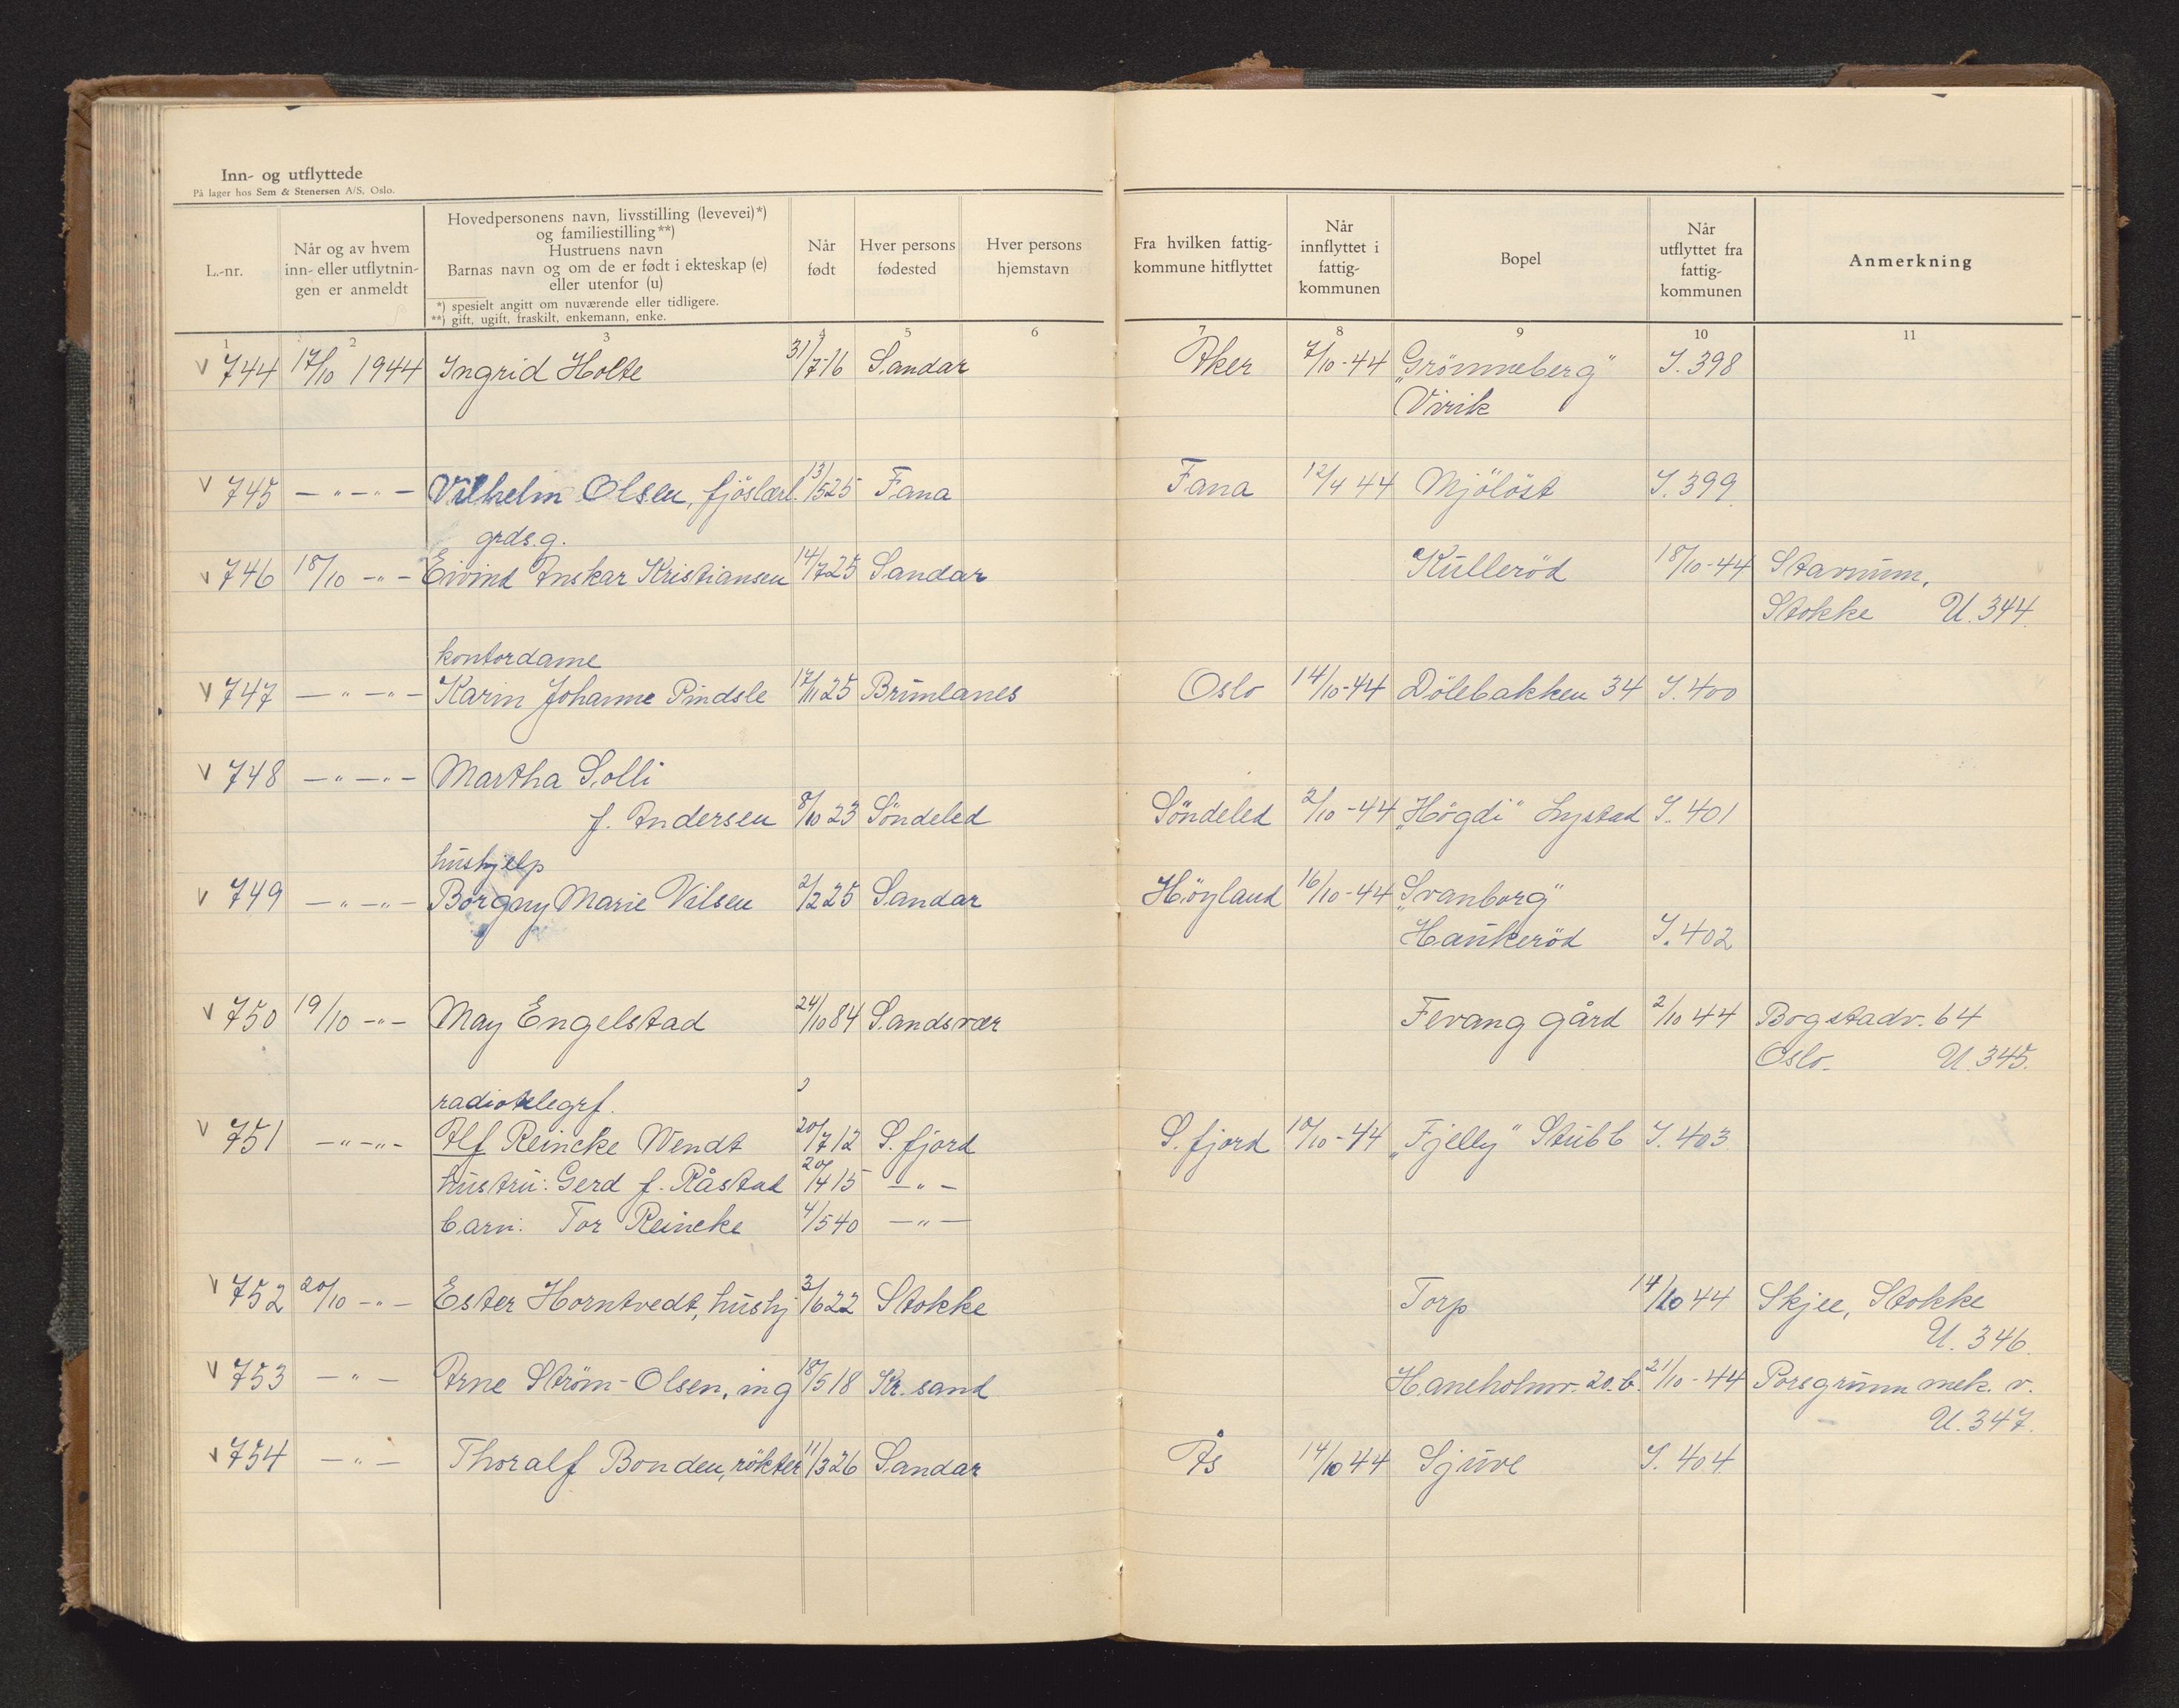 Inn- og utflyttede
På lager hos Sem & Stenersen A/S, Oslo.
L.-nr.
Når og av hvem
inn- eller utflytnin-
gen er anmeldt
Hovedpersonens navn, livsstilling (levevei)*)
og familiestilling**)
Hustruens navn
Barnas navn og om de er født i ekteskap (e)
eller utenfor (u)
*) spesielt angitt om nuværende eller tidligere.
**) gift, ugift, fraskilt, enkemann, enke.
Når
født
Hver persons
fødested
Hver persons
hjemstavn
Fra hvilken fattig-
kommune hitflyttet
Når
innflyttet i
fattig-
kommunen
Bopel
Når
utflyttet fra
fattig-
kommunen
Anmerkning
1 2 3 4 5 6 7 8 9 10 11
v 744 17/10 1944 Ingrid Holte 31/7-16 Sandar Aker 7/10-44 „Grönneberg" I. 398
Virik
v 745 -"-"- Vilhelm Olsen, fjöslærl. 13/5 25 Fana Fana 12/4 44 Mjölöst I. 399.
grds.g.
v 746 18/10 -"- Eivind Anskar Kristiansen 14/7 25 Sandar Kulleröd 18/10-44 Stavnum,
Stokke U. 344.
kontordame
v 747 -"-"- Karin Johanne Pindsle 17/11 25 Brunlanes Oslo 14/10-44 Dölebakken 34 I. 400
v 748 -"-"- Martha Solli
f. Andersen 8/10 23 Söndeled Söndeled 2/10-44 „Högdi" Lystad I. 401
hushjelp
v 749 -"-"- Borgny Marie Nilsen 2/2 25 Sandar Höyland 16/10-44 „Svanborg"
Haukeröd I. 402
v 750 19/10 -"- May Engelstad 24/10 84 Sandsvær Fevang gård 2/10 44 Bogstadv. 64
Oslo. U. 345.
radiotelegrf.
v 751 -"-"- Alf Reincke Wendt 20/7 12 S. fjord S. fjord 10/10-44 „Fjelly" Stubb I. 403
hustru: Gerd f. Råstad 20/4 15 -"-
barn: Tor Reincke 4/5 40 -"-
v 752 20/10 -"- Ester Horntvedt, hushj 3/6 22 Stokke Torp 14/10 44 Skjee, Stokke
U. 346.
v 753 -"- Arne Ström-Olsen, ing 18/5 18 Kr. sand Haneholmv. 20.b. 21/10-44 Porsgrunn mek. v.
U. 347.
v 754 -"- Thoralf Bonden, røkter 11/3 26 Sandar Ås 14/10 44 Gjuve I. 404